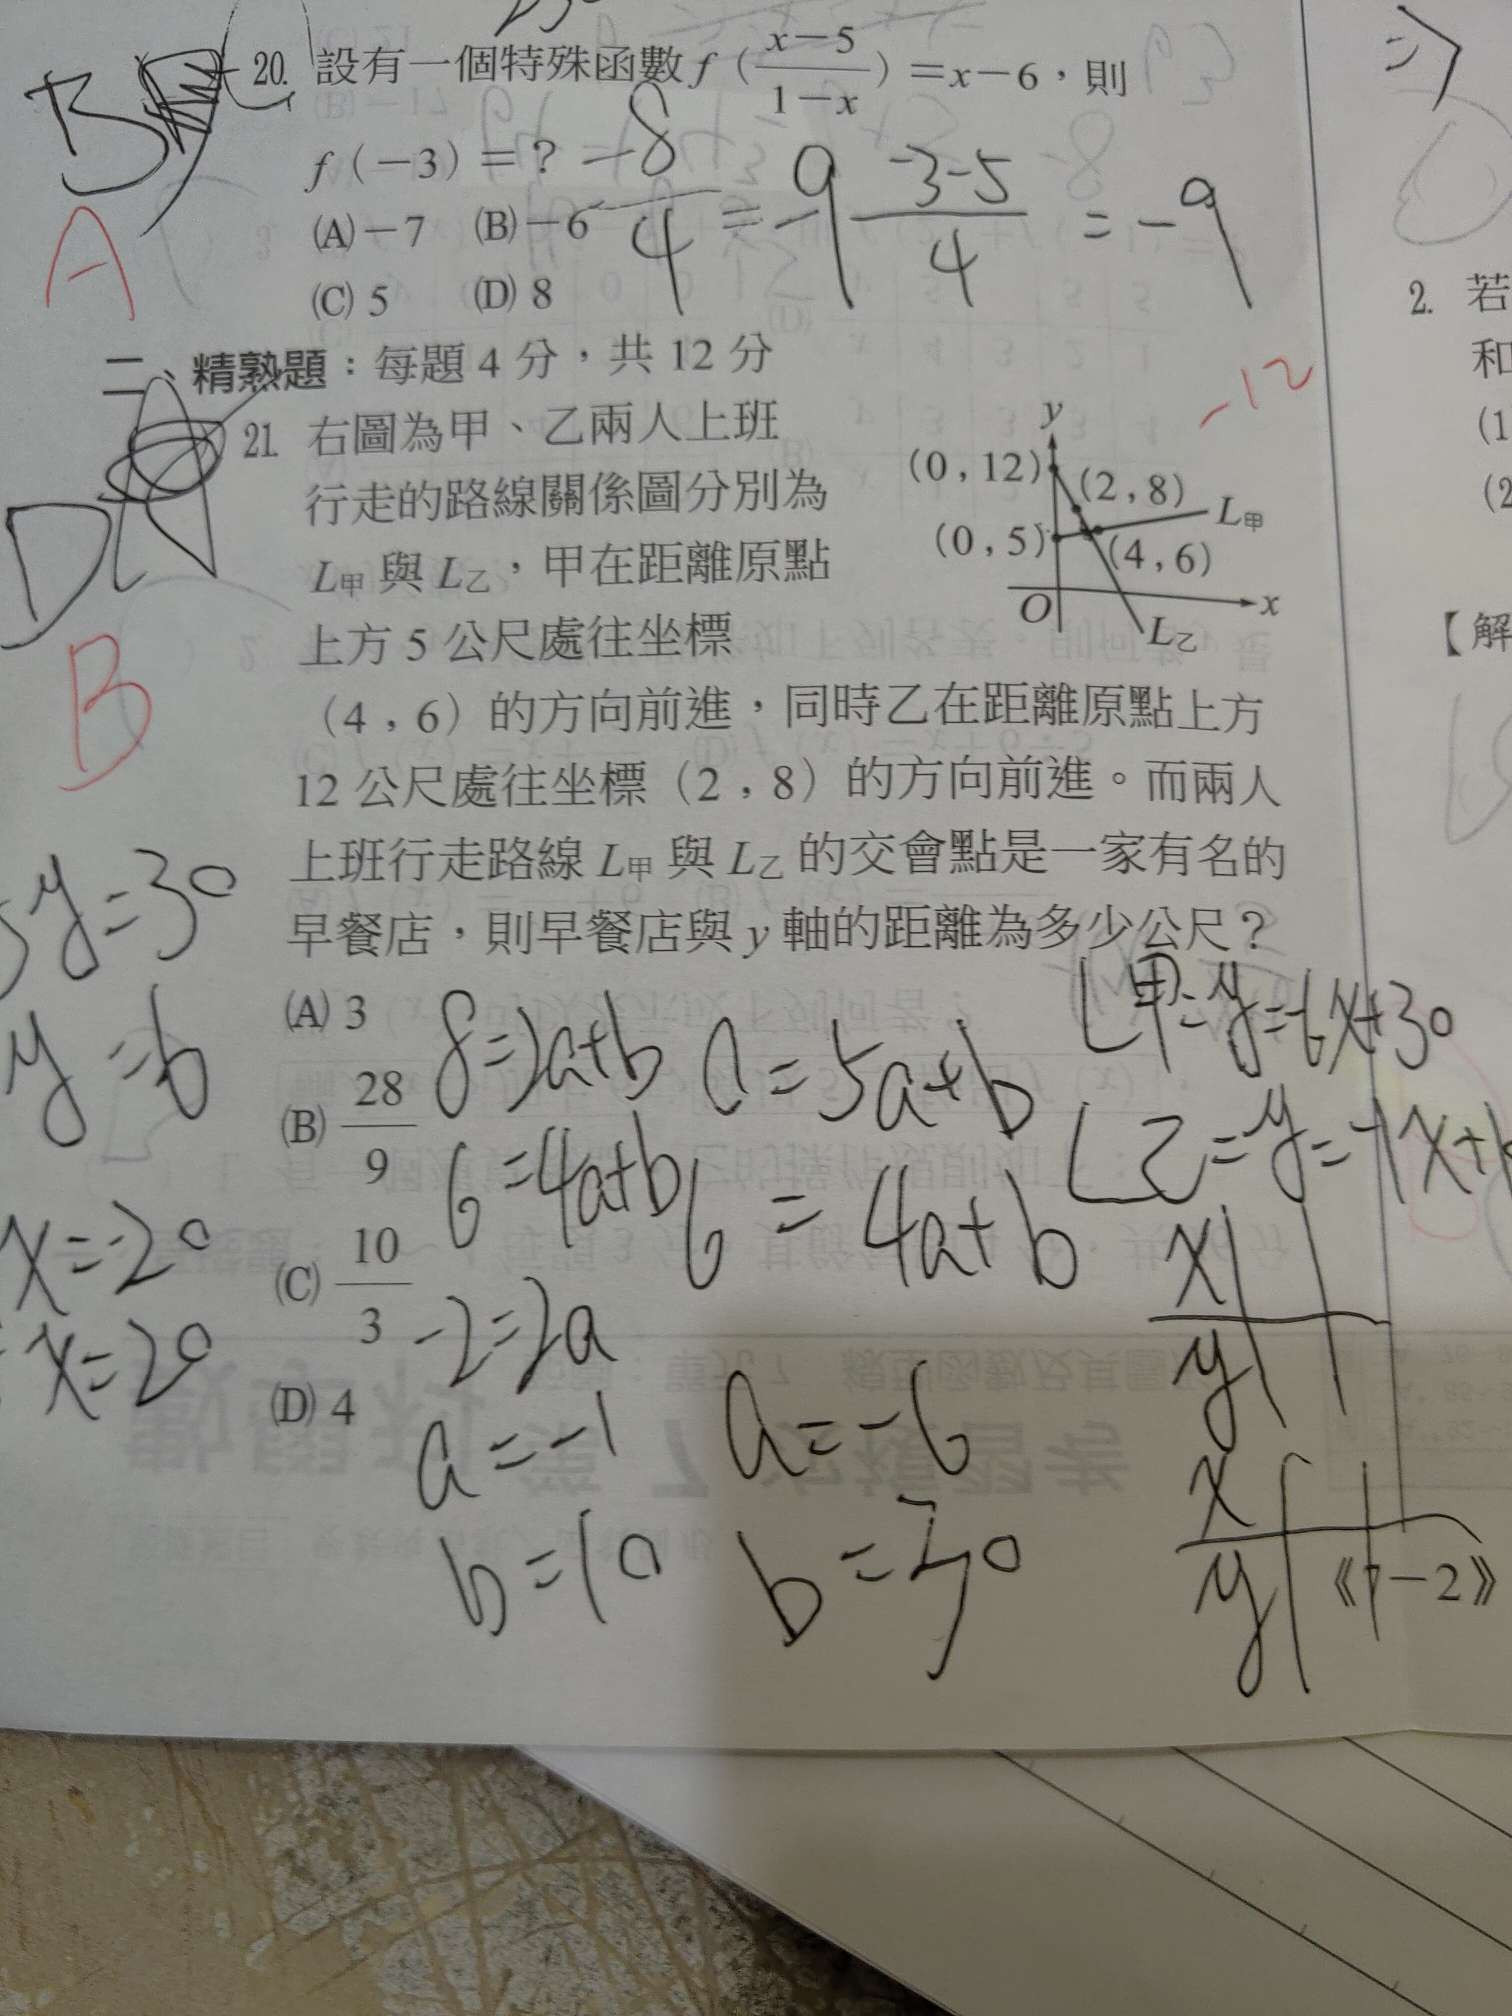 20. 設有一個特殊函數 f (\frac{x-5}{1-x}) =x-6,則
f (-3) = ? \frac{-8}{4} = -9 \frac{-3-5}{4} = -9
(A) -7 (B) -6
(C) 5 (D) 8
B
A
二、精熟題:每題 4 分,共 12 分
-12
21. 右圖為甲、乙兩人上班
行走的路線關係圖分別為
L甲 與 L乙,甲在距離原點
上方 5 公尺處往坐標
(4,6)的方向前進,同時乙在距離原點上方
12 公尺處往坐標(2,8)的方向前進。而兩人
上班行走路線 L甲 與 L乙 的交會點是一家有名的
早餐店,則早餐店與 y 軸的距離為多少公尺?
y
(0,12)
(2,8)
L甲
(0,5)
(4,6)
O
x
L乙
D
B
(A) 3
(B) \frac{28}{9}
(C) \frac{10}{3}
(D) 4
y=30
y=6
x=20
x=20
8=2a+b
6=4a+b
-2=2a
a=-1
b=10
0=5a+b
6=4a+b
a=-6
b=30
L甲=y=-6x+30
L乙=y=-1x+
x
y
x
y
《7-2》
2. 若
和
(1
(2
【解